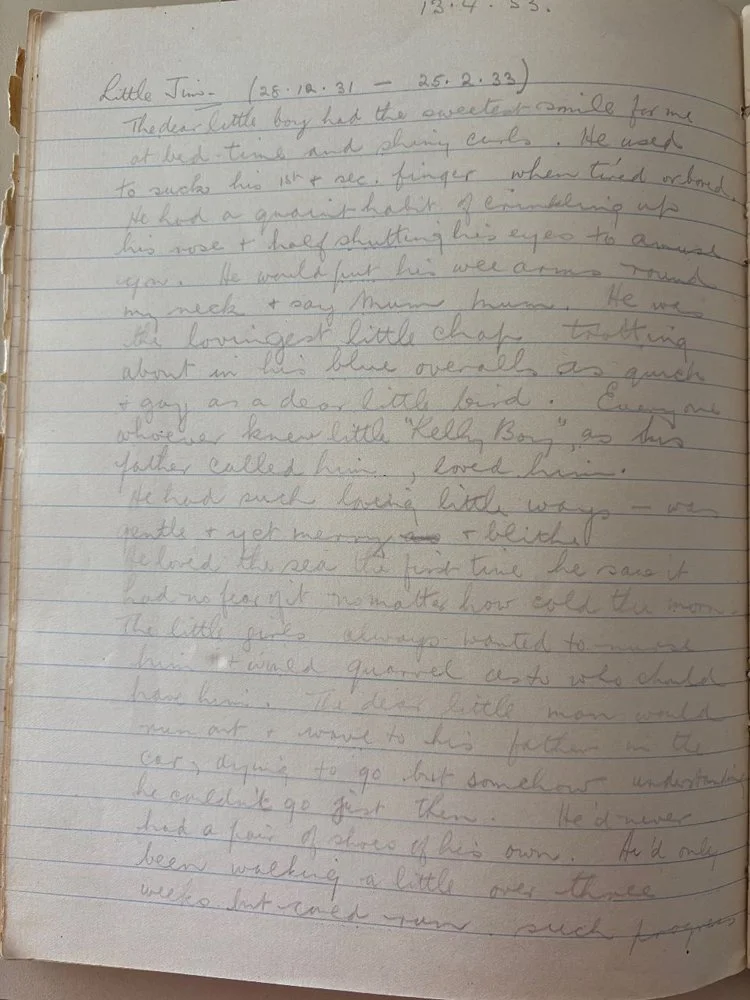 13.4.33.
Little Jim - (28.12.31 — 25.2.33)
The dear little boy had the sweetest smile for me
at bed-time and shiny curls. He used
to suck his 1st + sec. finger when tired or bored.
He had a quaint habit of crinkling up
his nose + half shutting his eyes to amuse
you. He would put his wee arms round
my neck + say Mum Mum. He was
the lovingest little chap trotting
about in his blue overalls as quick
+ gay as a dear little bird. Everyone
whoever knew little "Kelly Boy", as his
father called him, loved him.
He had such loving little ways — was
gentle + yet merry + blithe
He loved the sea the first time he saw it
had no fear of it no matter how cold the morn.
The little girls always wanted to nurse
him + would quarrel as to who should
have him. The dear little man would
run out + wave to his father in the
car, dying to go but somehow understanding
he couldn't go just then. He'd never
had a pair of shoes of his own. He'd only
been walking a little over three
weeks but could run. such progress